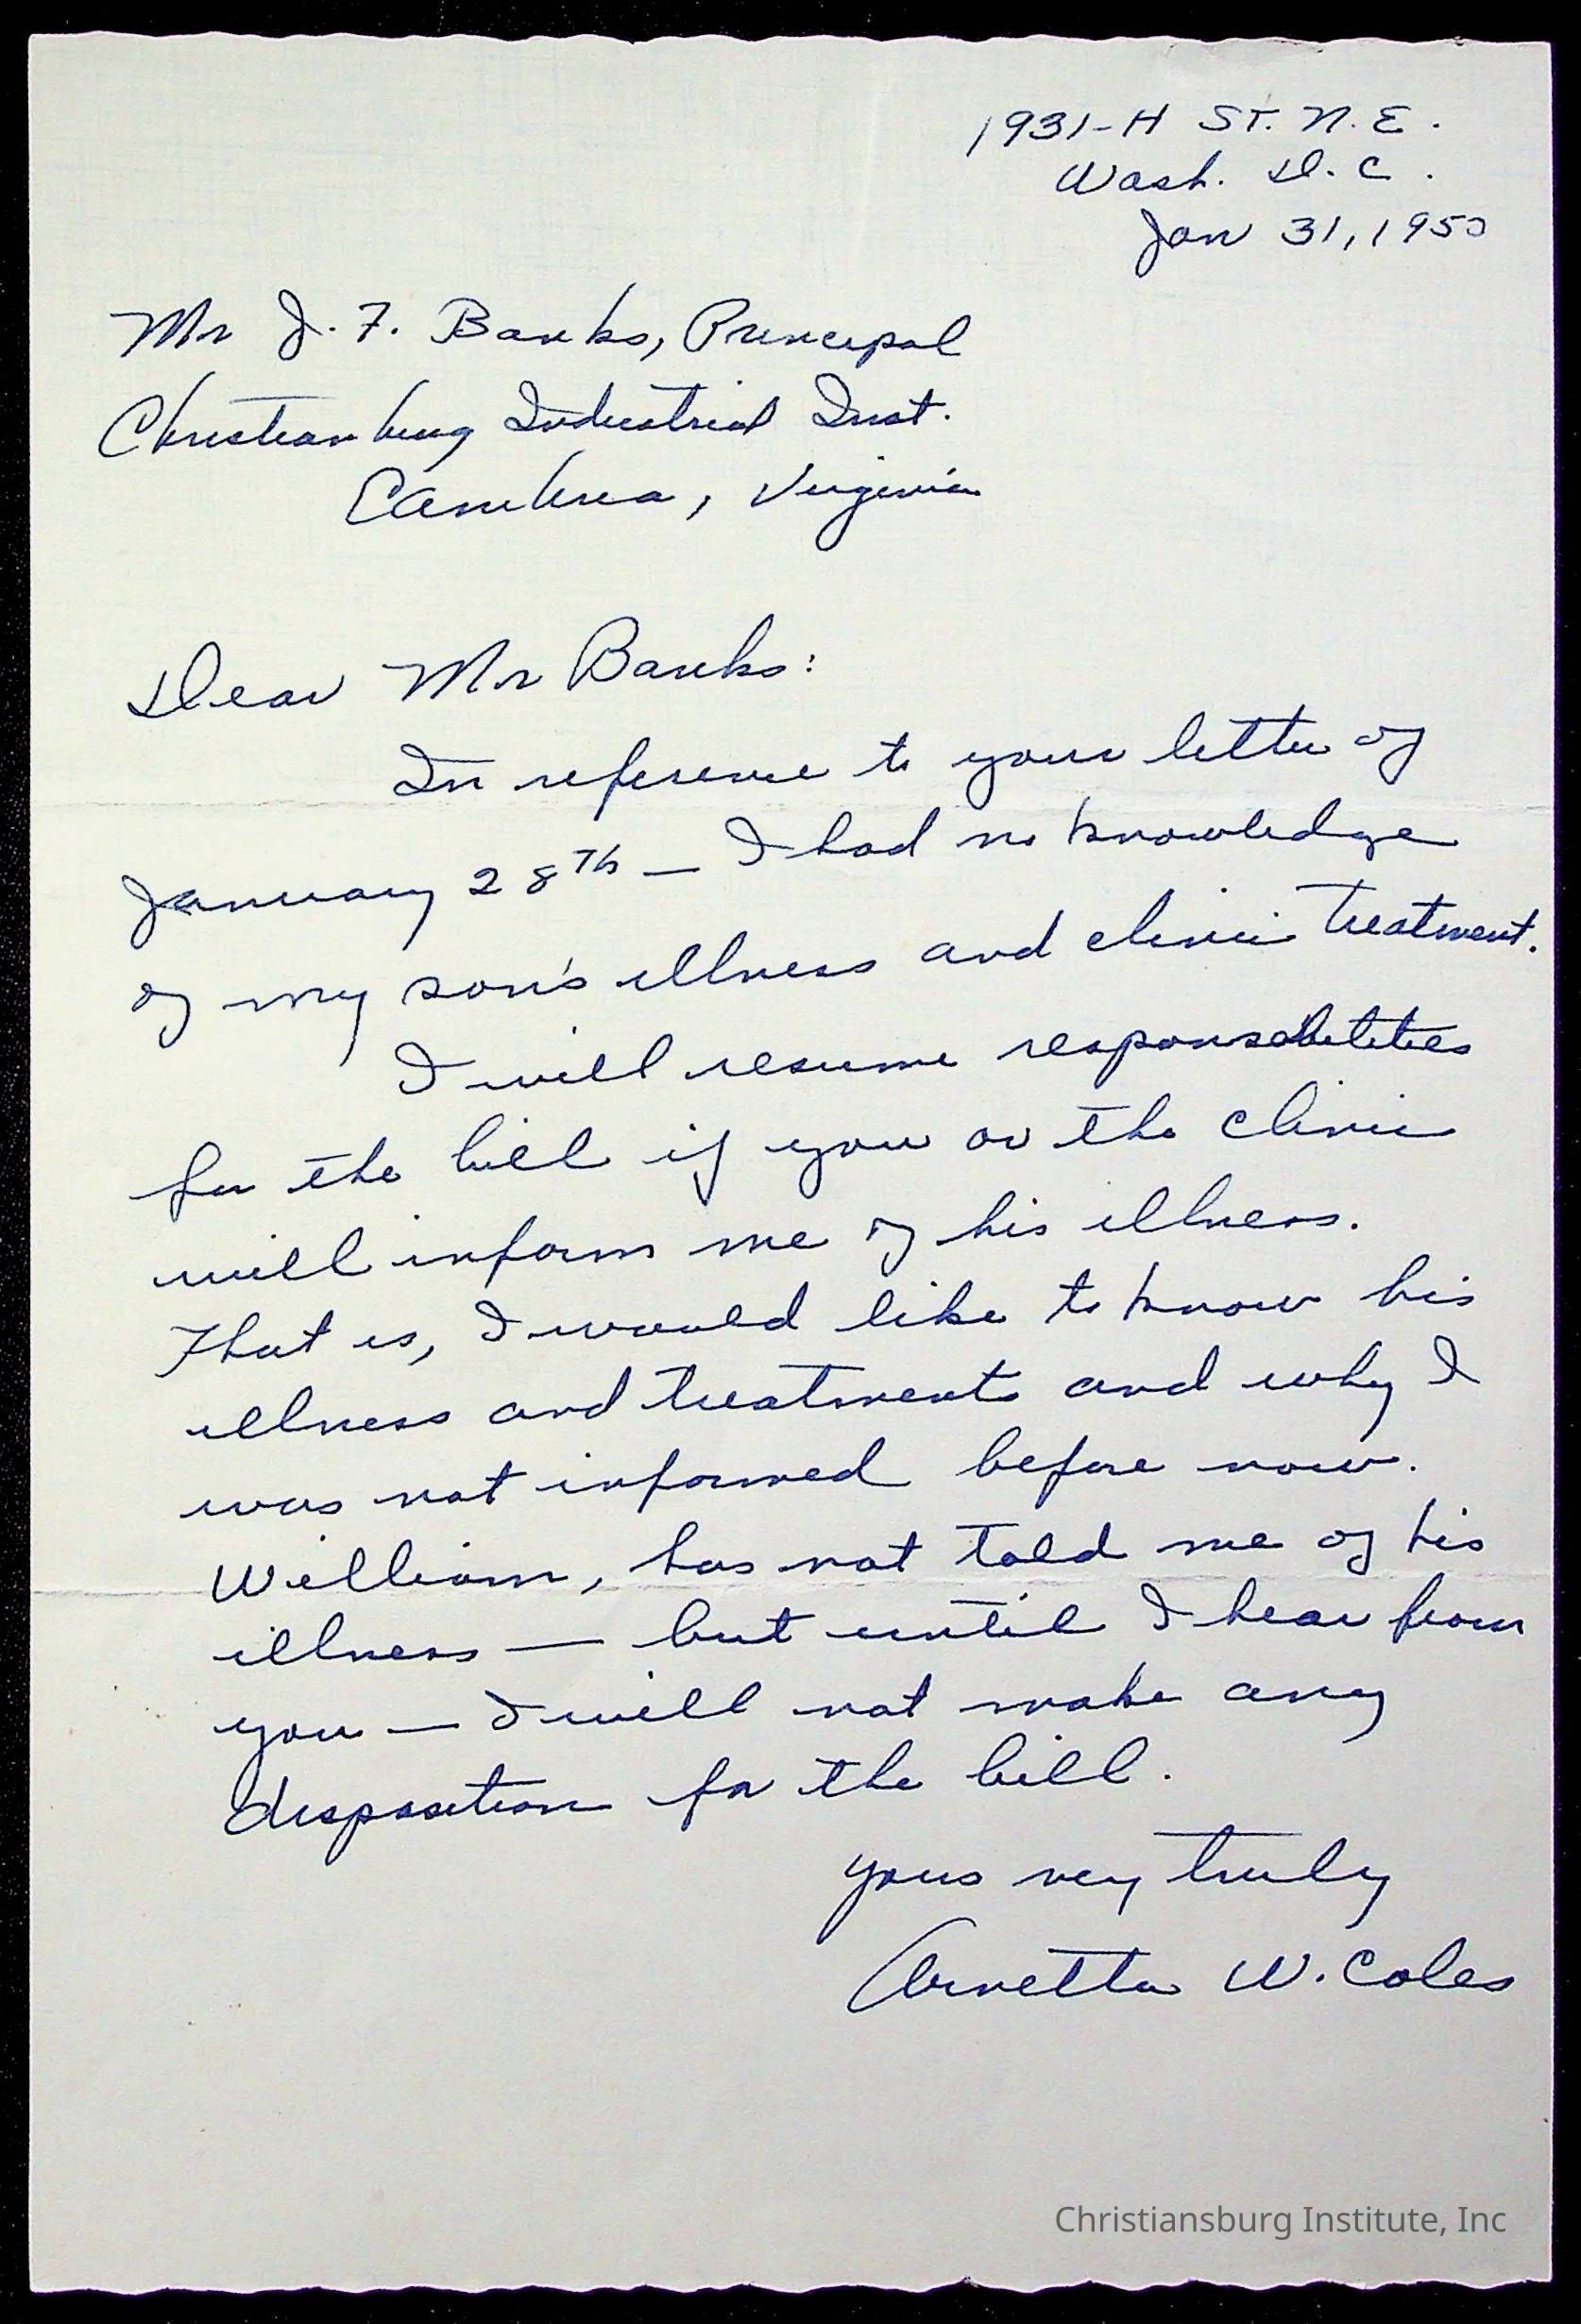 1931-H ST. N.E.
Wash. D.C.
Jan 31, 1950
Mr J. F. Banks, Principal
Christianburg Industrial Inst.
Cambria, Virginia
Dear Mr Banks:
In reference to your letter of
January 28th — I had no knowledge
of my son's illness and clinic treatment.
I will resume responsabilities
for the bill if you or the clinic
will inform me of his illness.
That is, I would like to know his
illness and treatments and why I
was not informed before now.
William, has not told me of his
illness — but until I hear from
you — I will not make any
disposition for the bill.
Yours very truly
Arnetta W. Coles
Christiansburg Institute, Inc